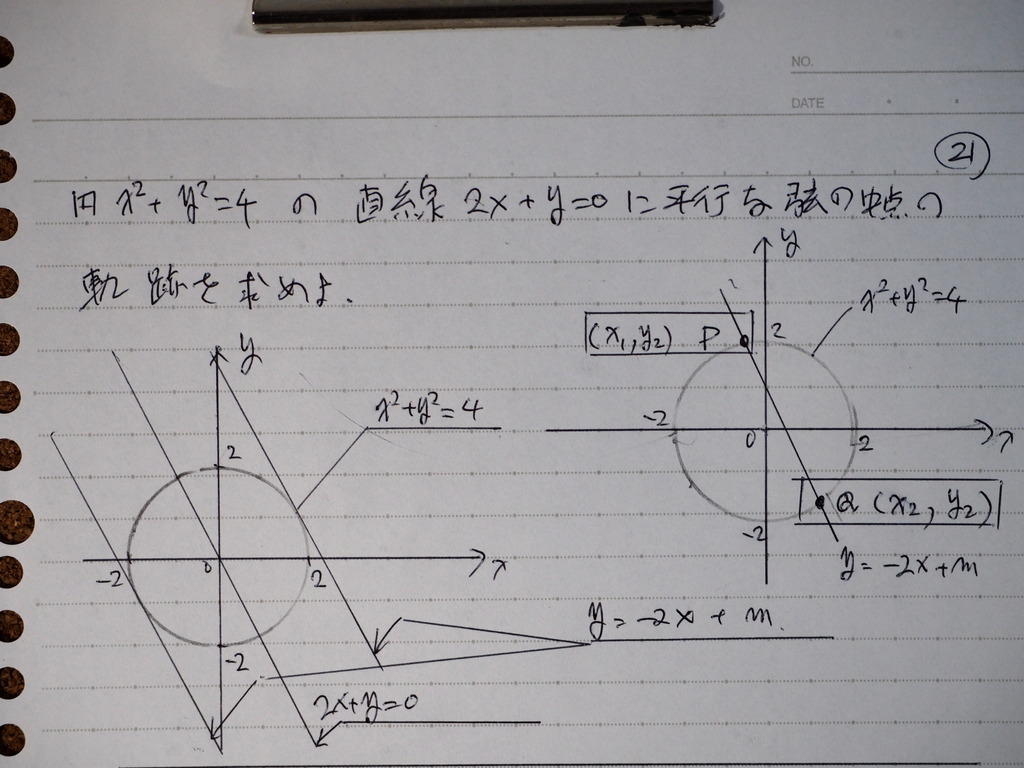 NO.
DATE
21
円 x²+y²=4 の 直線 2x+y=0 に平行な弦の中点の
軌跡を求めよ.
y
x²+y²=4
(x₁,y₂) P
2
-2
0
2
x
-2
Q (x₂,y₂)
y=-2x+m
y
x²+y²=4
2
-2
0
2
x
-2
y=-2x+m.
2x+y=0